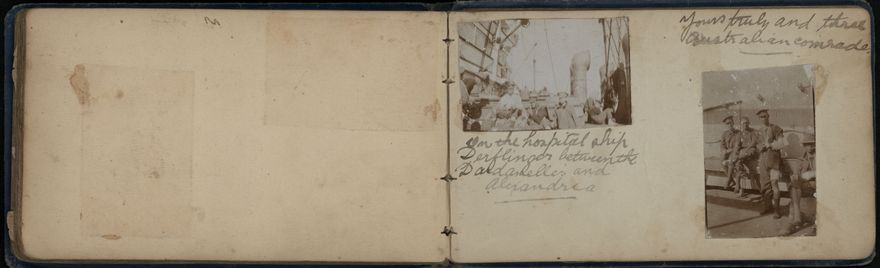 Yours truly and three
Australian comrades
On the hospital ship
Derflinger between the
Dardanelles and
Alexandria